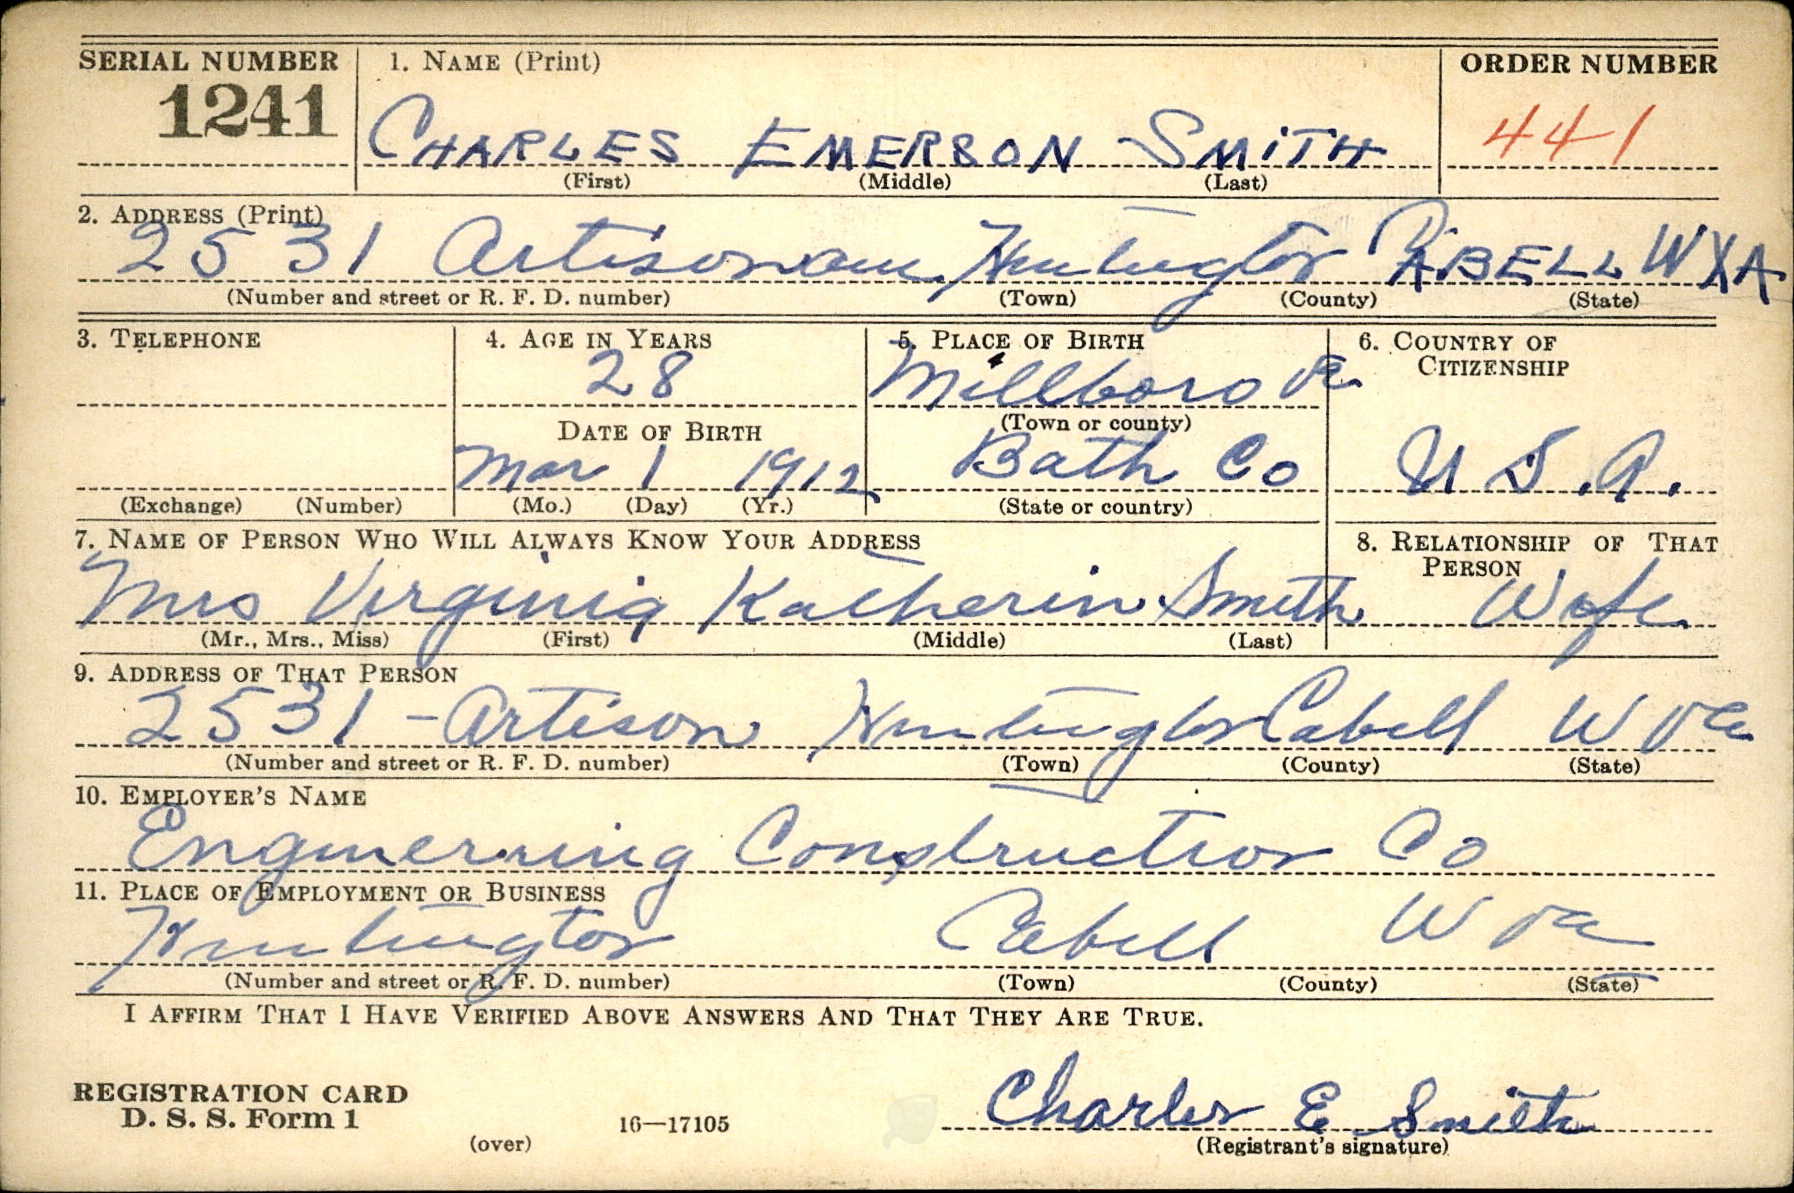 SERIAL NUMBER 1. NAME (Print) ORDER NUMBER
1241 CHARLES EMERSON SMITH 441
(First) (Middle) (Last)
2. ADDRESS (Print)
2531 Artison ave. Huntington CABELL W VA
(Number and street or R. F. D. number) (Town) (County) (State)
3. TELEPHONE 4. AGE IN YEARS 5. PLACE OF BIRTH 6. COUNTRY OF CITIZENSHIP
28 Millboro Va
DATE OF BIRTH (Town or county)
Mar 1 1912 Bath Co U S.A.
(Exchange) (Number) (Mo.) (Day) (Yr.) (State or country)
7. NAME OF PERSON WHO WILL ALWAYS KNOW YOUR ADDRESS 8. RELATIONSHIP OF THAT PERSON
Mrs Virginia Katherin Smith Wife
(Mr., Mrs., Miss) (First) (Middle) (Last)
9. ADDRESS OF THAT PERSON
2531 - Artison Huntington Cabell W Va
(Number and street or R. F. D. number) (Town) (County) (State)
10. EMPLOYER'S NAME
Enginerring Construction Co
11. PLACE OF EMPLOYMENT OR BUSINESS
Huntington Cabell W Va
(Number and street or R. F. D. number) (Town) (County) (State)
I AFFIRM THAT I HAVE VERIFIED ABOVE ANSWERS AND THAT THEY ARE TRUE.
REGISTRATION CARD
D. S. S. Form 1 Charles E Smith
(over) 16—17105 (Registrant's signature)